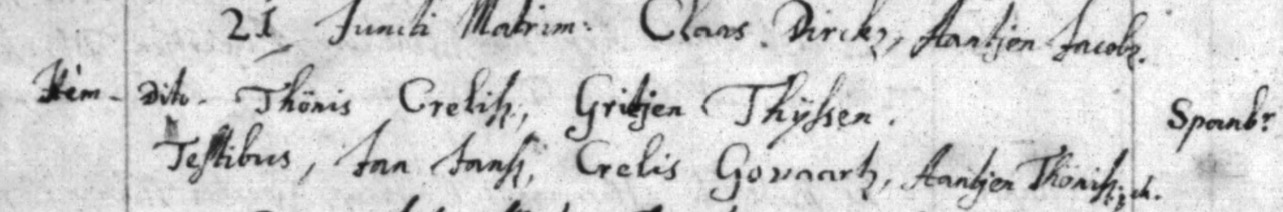 21 Juncti Matrim: Claas Dircksz, Aantjen Jacobsz.
Item - Dito - Thönis Crelisz, Gritjen Thÿssen. Spanbr
Testibus, Jan Jansz, Crelis Govaartsz, Aantjen Thönisz; &c.